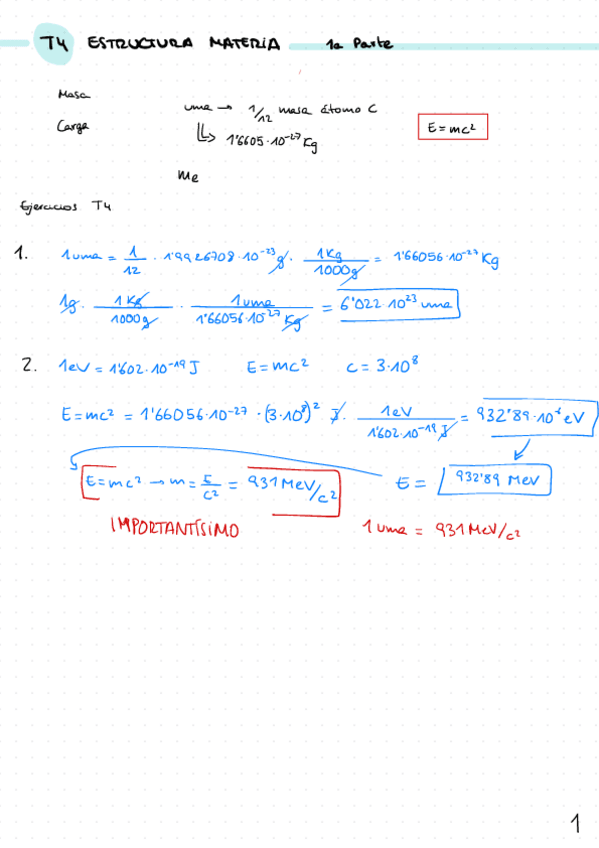 T4 ESTRUCTURA MATERIA 1a Parte
Masa
uma → 1/12 masa átomo C
Carga
↳ 1'6605·10⁻²⁷ Kg
E=mc²
me
Ejercicios T4
1. 1uma = 1/12 · 1'9926708·10⁻²³ g · 1Kg/1000g = 1'66056·10⁻²⁷ Kg
1g · 1Kg/1000g · 1uma/1'66056·10⁻²⁷ Kg = 6'022·10²³ uma
2. 1eV = 1'602·10⁻¹⁹ J E=mc² c = 3·10⁸
E=mc² = 1'66056·10⁻²⁷ · (3·10⁸)² J · 1eV/1'602·10⁻¹⁹ J = 932'89·10⁶ eV
E=mc² → m = E/c² = 931 MeV/c² E = 932'89 MeV
IMPORTANTÍSIMO 1 uma = 931 MeV/c²
1